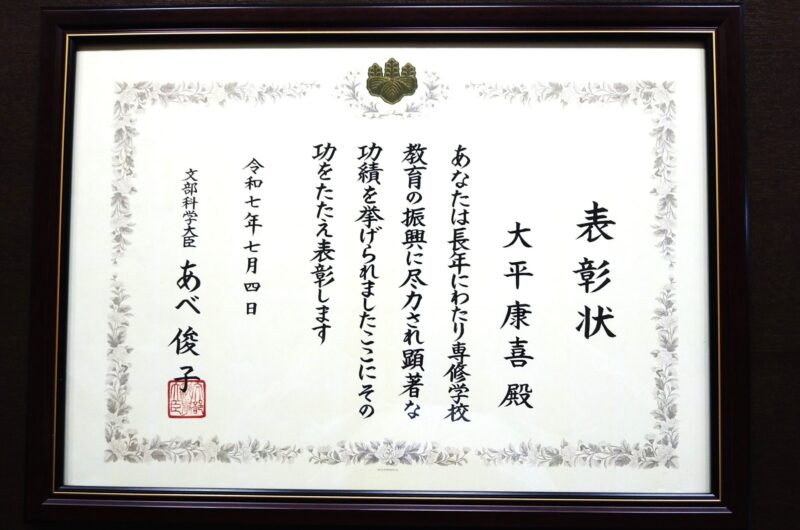 表彰状
大平康喜殿
あなたは長年にわたり専修学校
教育の振興に尽力され顕著な
功績を挙げられましたここにその
功をたたえ表彰します
令和七年七月四日
文部科学大臣 あべ俊子